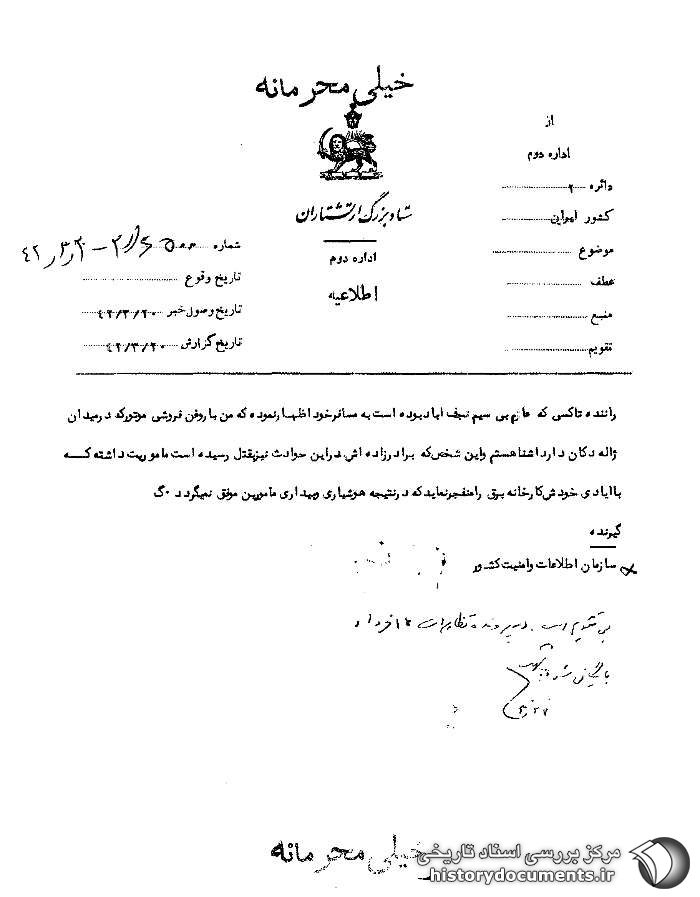 خیلی محرمانه
از
اداره دوم
دائره ۲
کشور ایران
موضوع
عطف
منبع
تقویم
ستاد بزرگ ارتشتاران
اداره دوم
اطلاعیه
شماره
تاریخ وقوع
تاریخ وصول خبر ۴۲/۳/۲۰
تاریخ گزارش ۴۲/۳/۲۰
راننده تاکسی که عازم بی سیم نجف اباد بوده است به مسافر خود اظهار نموده که من با روغن فروشی موتورکه درمیدان
ژاله دکان دارد اشنا هستم واین شخص که برادرزاده اش دراین حوادث نیز بقتل رسیده است ماموریت داشته کـــه
با ایادی خودش کارخانه برق را منفجر نماید که درنتیجه هوشیاری وبیداری مامورین موفق نمیگردد ۰ گ
گیرنده
سازمان اطلاعات وامنیت کشور
در پرونده تظاهرات ۱۵ خرداد
بایگانی شود
خیلی محرمانه
مرکز بررسی اسناد تاریخی
historydocuments.ir